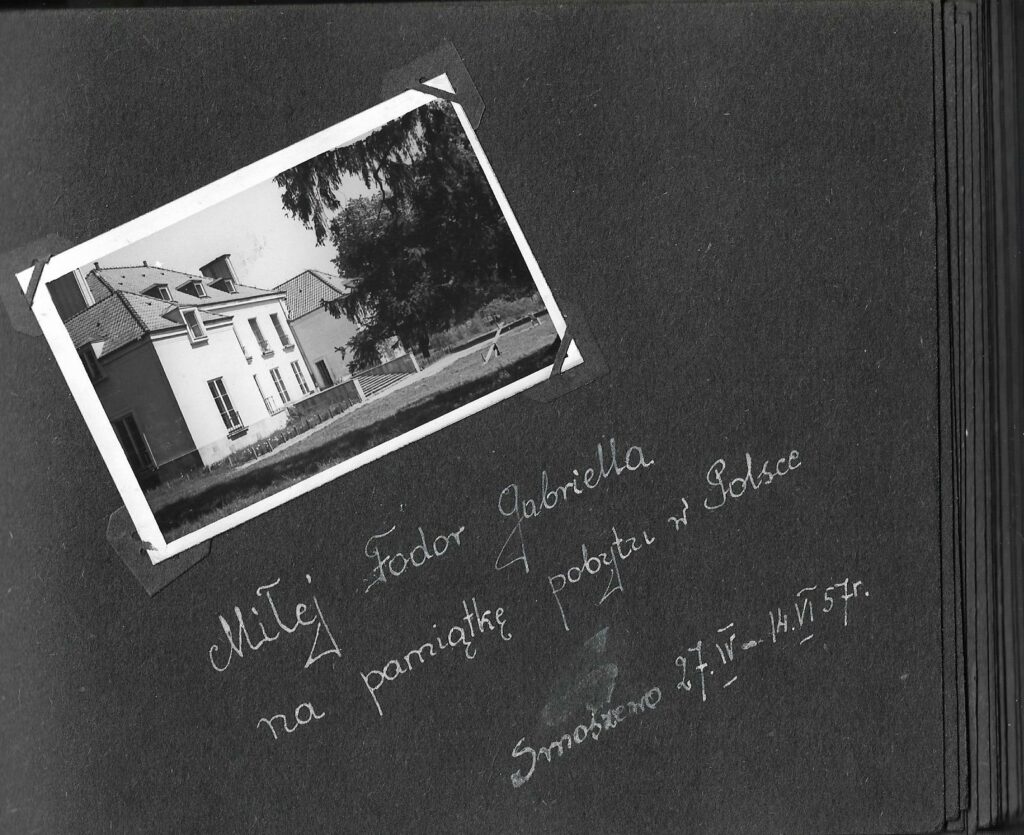 Miłej Fodor Gabriella
na pamiątkę pobytu w Polsce
Smoszewo 27.IV–14.VI 57r.